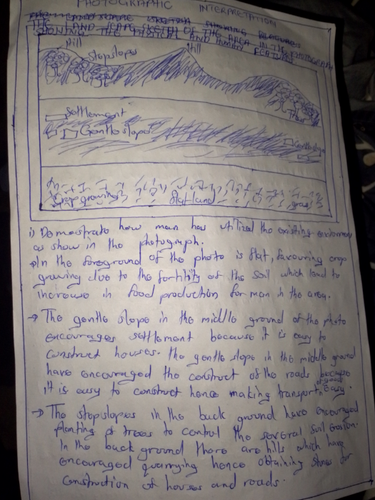 PHOTOGRAPHIC INTERPRETATION
Hill Hill
Stopslopes
Settlement
Gentle slopes
Crop growing flat land
i) Demonstrate how man has utilised the existing
as show in the photograph.
→ In the foreground of the photo is flat, favouring crop
growing due to the fertility of the soil which lead to
increase in food production for man in the area.
→ The gentle slope in the middle ground of the photo
encourages settlement because it is easy to
construct houses. the gentle slope in the middle ground
have encouraged the construct of the roads because
it is easy to construct hence making transport easy.
→ The stopslopes in the back ground have encouraged
planting of trees to control the several soil erosion.
In the back ground there are hills which have
encouraged quarrying hence obtaining stones for
construction of houses and roads.